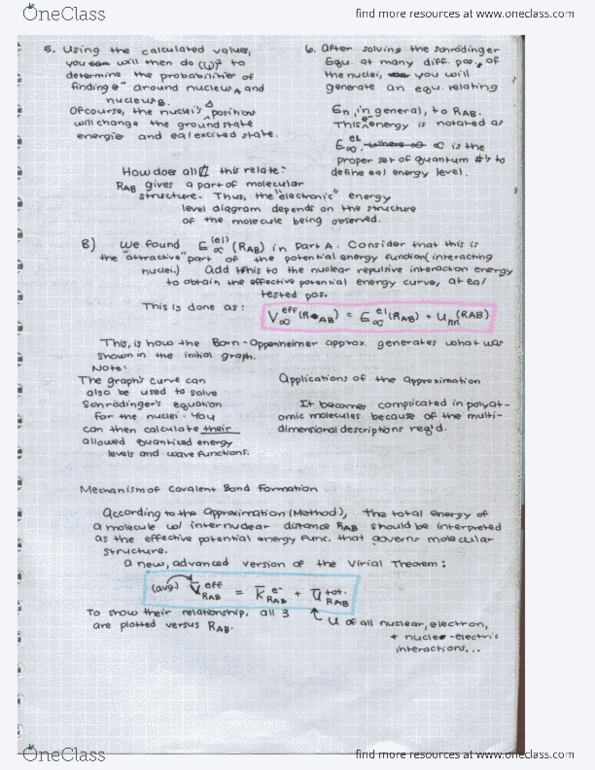 OneClass
find more resources at www.oneclass.com
5. Using the calculated values,
you will then do (ψ)² to
determine the probabilities of
finding e⁻ around nucleus A and
nucleus B.
Ofcourse, the nuclei's Δ positions
will change the ground state
energies and ea/ excited state.
6. After solving the schrödinger
Equ. at many diff. pos. of
the nuclei, you will
generate an equ. relating
En, in general, to RAB.
This e⁻ energy is notated as
E∝ el. ∝ is the
proper set of quantum #'s to
define ea/ energy level.
How does all this relate?
RAB gives a part of molecular
structure. Thus, the "electronic" energy
level diagram depends on the structure
of the molecule being observed.
B) We found E∝(el)(RAB) in part A. Consider that this is
the "attractive" part of the potential energy function (interacting
nuclei.) Add this to the nuclear repulsive interaction energy
to obtain the effective potential energy curve, at ea/
tested pos.
This is done as: V∝eff(RAB) = E∝el(RAB) + Unn(RAB)
This, is how the Born-Oppenheimer approx. generates what was
shown in the initial graph.
Note:
The graph's curve can
also be used to solve
Schrödinger's equation
for the nuclei. You
can then calculate their
allowed quantized energy
levels and wave functions.
Applications of the Approximation
It becomes complicated in polyat-
omic molecules because of the multi-
dimensional descriptions req'd.
Mechanism of Covalent Bond Formation
According to the Approximation (Method), the total energy of
a molecule w/ internuclear distance RAB should be interpreted
as the effective potential energy func. that governs molecular
structure.
a new, advanced version of the Virial Theorem:
(avg.) V̄eff RAB = K̄e⁻ RAB + Ūtot. RAB
To show their relationship, all 3
are plotted versus RAB.
U of all nuclear, electron,
+ nucleo-electric
interactions...
OneClass
find more resources at www.oneclass.com